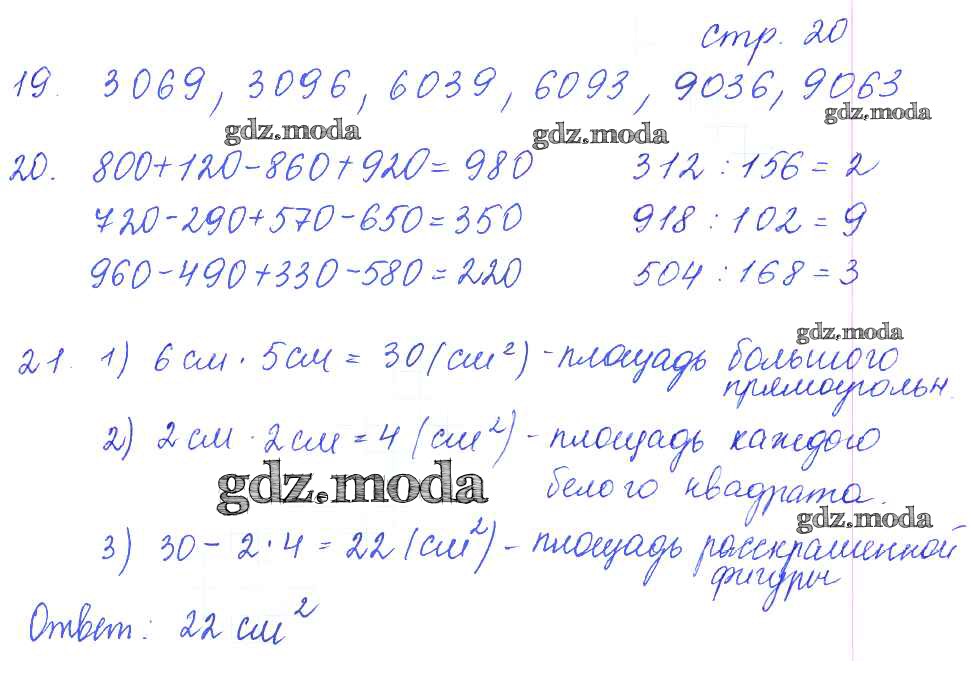 стр. 20
19. 3069, 3096, 6039, 6093, 9036, 9063
gdz.moda
gdz.moda gdz.moda
20. 800+120-860+920=980 312 : 156 = 2
720-290+570-650=350 918 : 102 = 9
960-490+330-580=220 504 : 168 = 3
gdz.moda
21. 1) 6 см · 5 см = 30 (см²) - площадь большого
прямоугольн.
2) 2 см · 2 см = 4 (см²) - площадь каждого
gdz.moda белого квадрата.
gdz.moda
3) 30 - 2 · 4 = 22 (см²) - площадь расскрашенной
фигуры
Ответ: 22 см²